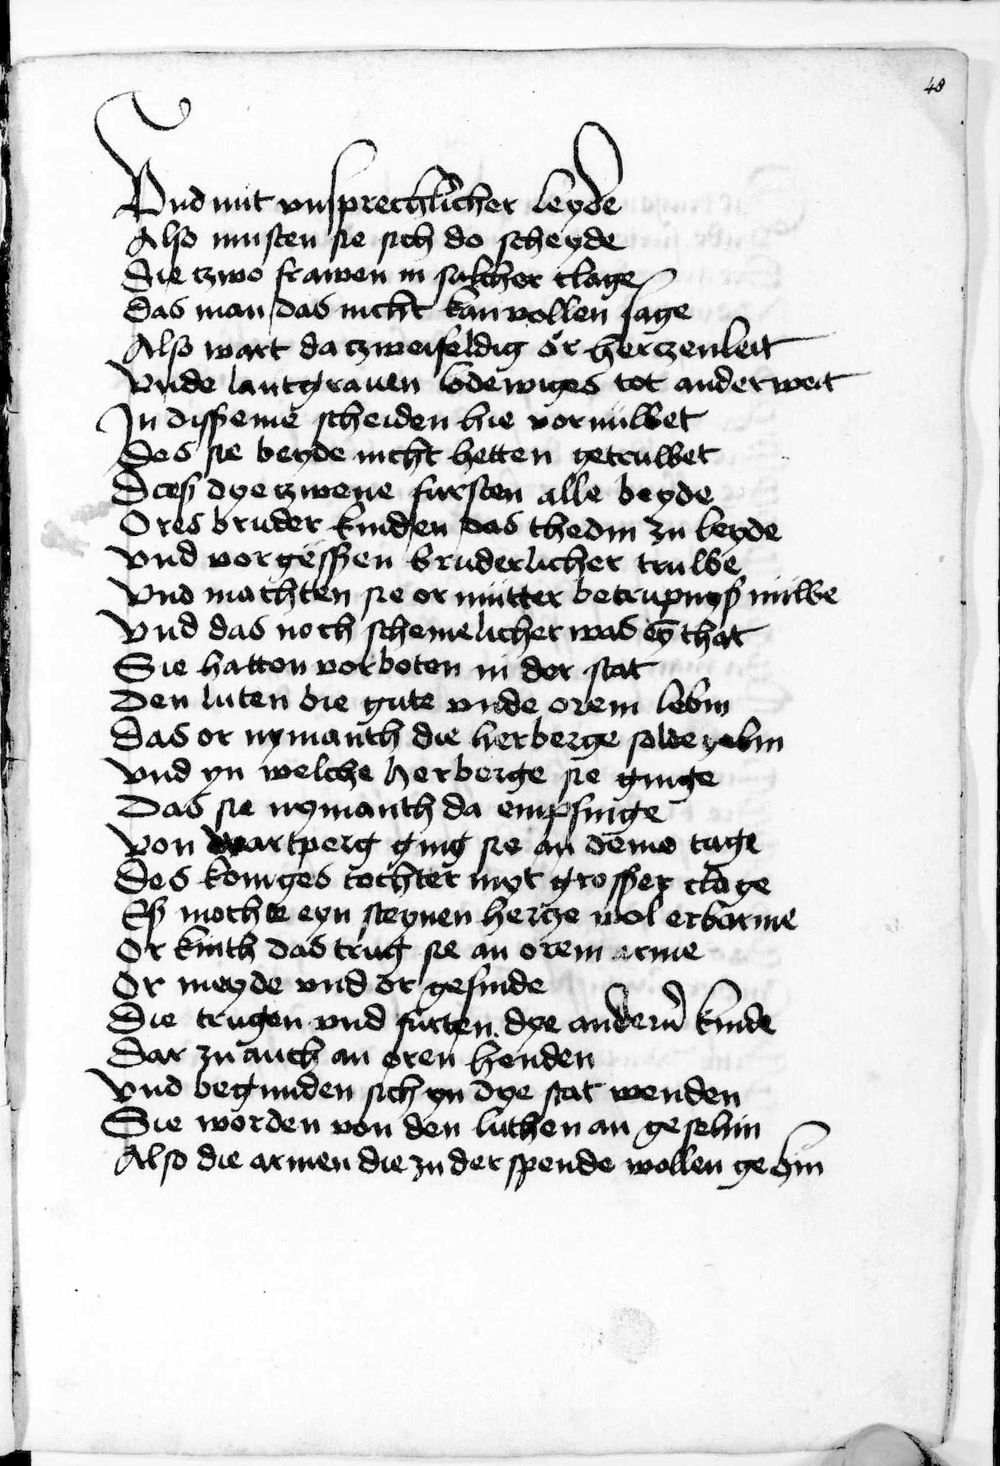 48
Vnd mit vnsprechlicher leyde
Also musten sie sich do scheyde
Die czwo frawen in sulcher clage
Das man das nicht kan vollen sage
Also wart da czweifeldig ör herczenleit
Vnde lantgrauen lodewiges tot anderweit
In disseme scheiden hie vornuwet
Des sie beyde nicht hetten getruwet
Dass dye czwene fursten alle beyde
Ores bruder kinden das thedin zu leyde
Vnd vorgessen bruderlicher truwe
Vnd machten sie or mutter betrupnys nuwe
Vnd das noch schemelicher was eyn that
Sie hatten vorboten in der stat
Den luten bie gute vnde orem lebin
Das or nymanth die herberge solde gebin
Vnd yn welche herberge sie ginge
Das sie nymanth da empfinge
Von wartperg ging sie an deme tage
Des koniges tochter myt grosser clage
Es mochte eyn steynen hertze wol erbarme
Or kinth das trug sie an orem arme
Or meyde vnd or gesinde
Die trugen vnd furten dye andern kinde
Dar zu auch an oren henden
Vnd begunden sich yn dye stat wenden
Sie worden von den luthen an gesehin
Also die armen die zu der spende wollen gehin